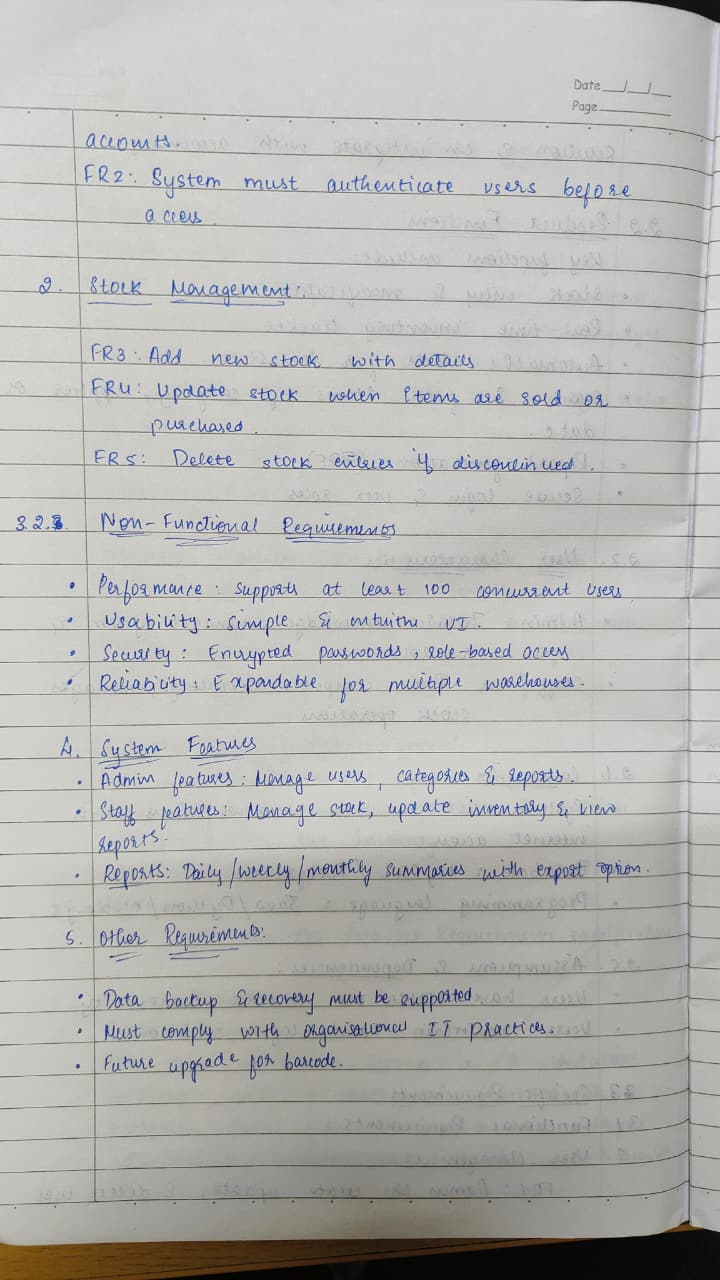 Date
Page
accounts.
FR2: System must authenticate users before
access.
2. Stock Management:
FR3: Add new stock with details
FR4: Update stock when items are sold or
purchased.
FR5: Delete stock entries if discontinued.
3.2. Non-Functional Requirements
• Performance: Supports at least 100 concurrent users
• Usability: Simple & intuitive UI.
• Security: Encrypted passwords, role-based access
• Reliability: Expandable for multiple warehouses.
4. System Features
• Admin features: Manage users, categories & reports.
• Staff features: Manage stock, update inventory & view
reports.
• Reports: Daily/weekly/monthly summaries with export option.
5. Other Requirements:
• Data backup & recovery must be supported.
• Must comply with organisational IT practices.
• Future upgrade for barcode.